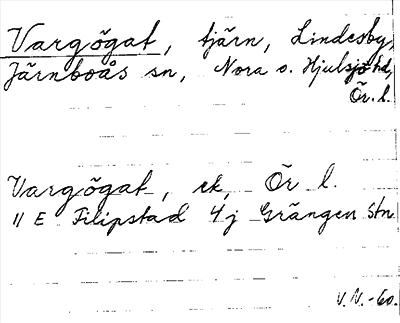 Vargögat, tjärn, Lindesby,
Järnboås sn, Nora o. Hjulsjö hd,
Ör. l.
Vargögat, ek, Ör l.
11 E Filipstad 4j Grängen stn
V.N.-60.